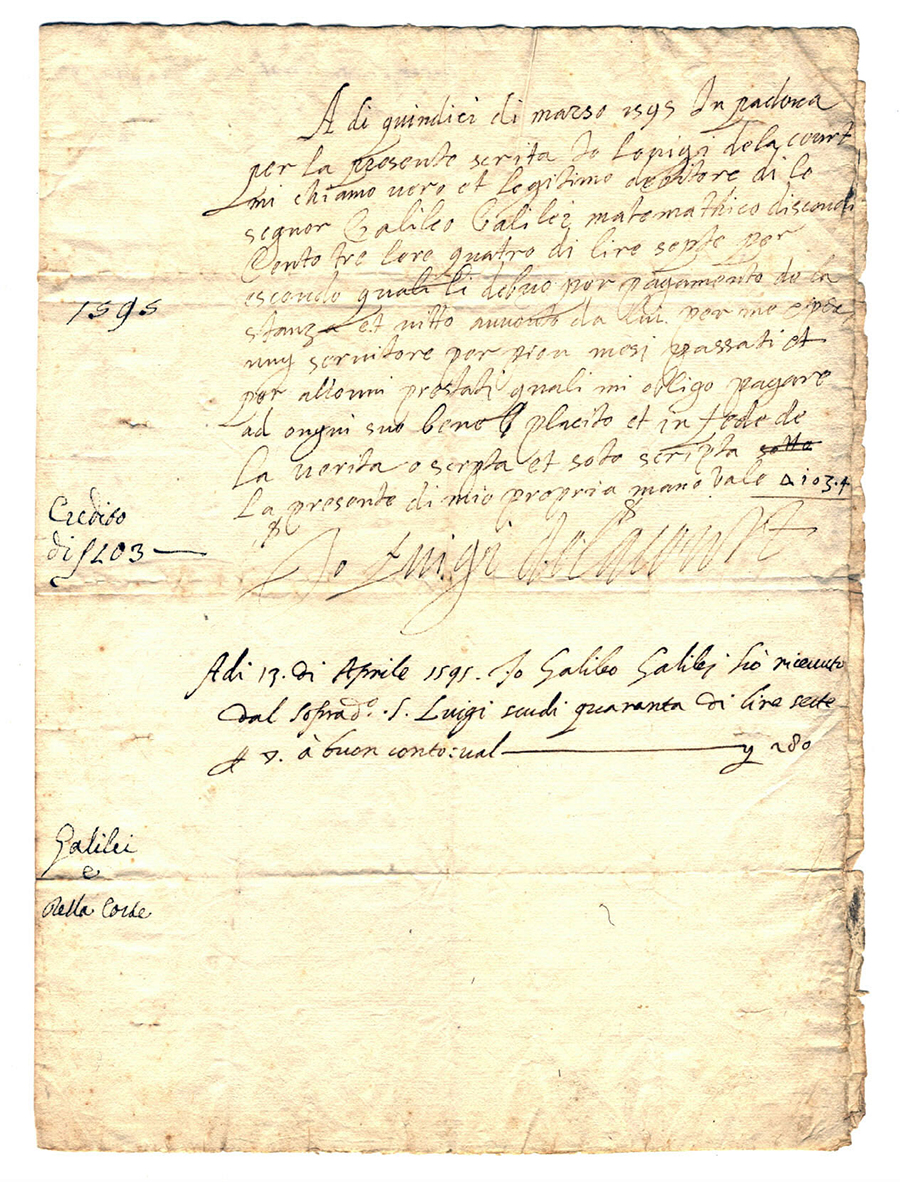 A di quindici di marso 1595 In padova
per la presente scrita Jo Louigi dela court
mi chiamo vero et legitimo debitore di lo
segnor Galileo Galilei matemathico discoudi
Cento tre lere quatro di lire septe per
escoudo quali li debuo por pagamento de la
stanza et vitto avvouto da lui per me
ung servitore per piou mesi passati et
per prestati quali mi obligo pagare
ad ongni suo bene placito et in fede de
La verita o scrpta et soto scripta sotto
La presente di mio propria mano Vale 103.4
Jo Luigi de la court
1595
Credito
di 103
Adi 13. di Aprile 1595. Io Galileo Galilej hò ricevuto
dal sopradº. S. Luigi scudi quaranta di lire sette
à buon conto: val 280
Galilei
e
Della Corte